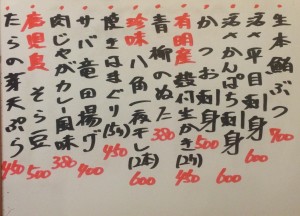 生本鮪ぶつ 700
活〆平目刺身 600
活〆かんぱち刺身 600
かつお刺身 500
有明産 殻付生かき(2ケ) 450
青柳のぬた 380
珍味 八角一夜干し(2本) 600
焼きはまぐり(5ケ) 450
サバ竜田揚げ 400
肉じゃがカレー風味 380
鹿児島 そら豆 500
たらの芽天ぷら 450